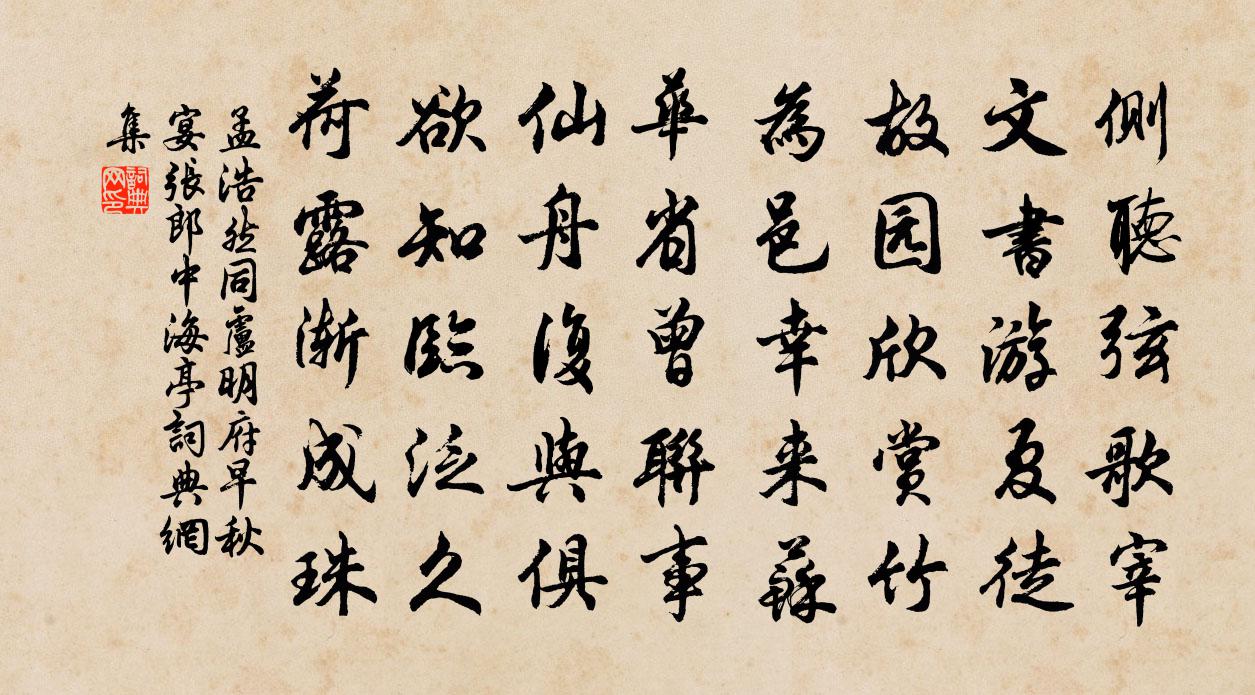 側聽弦歌宰
文書游夏徒
故园欣賞竹
為邑幸来蘇
華省曾聯事
仙舟復與俱
欲知臨泛久
荷露渐成珠
孟浩然同盧明府早秋
宴張郎中海亭詞典網
集
詞典网印